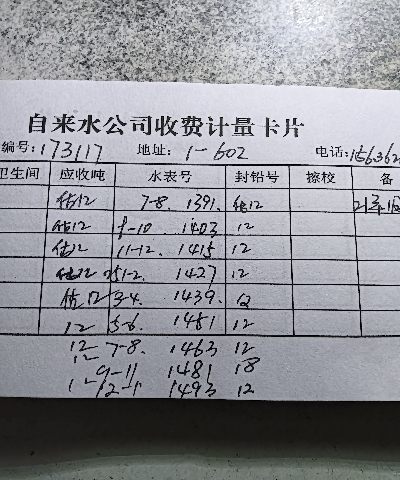 自来水公司收费计量卡片
编号:173117 地址: 1-602 电话:156362
卫生间 应收吨 水表号 封铅号 擦校 备
估12 7-8. 1391. 估12
估12 9-10 1403 12
估12 11-12. 1415 12
估12 1-2. 1427 12
估12 3-4. 1439.
12 5-6. 1451 12
12 7-8. 1463 12
9-11 1481 18
12-1 1493 12